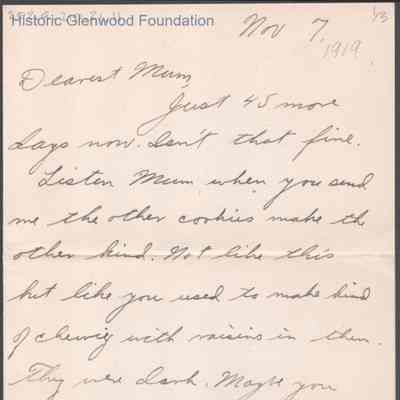 Historic Glenwood Foundation
1/3
Nov 7,
1919.
Dearest Mum,
Just 45 more
days now. Isn't that fine.
Listen Mum when you send
me the other cookies make the
other kind. Not like this
but like you used to make kind
of chewig with raisins in them.
They were dark. Maybe you